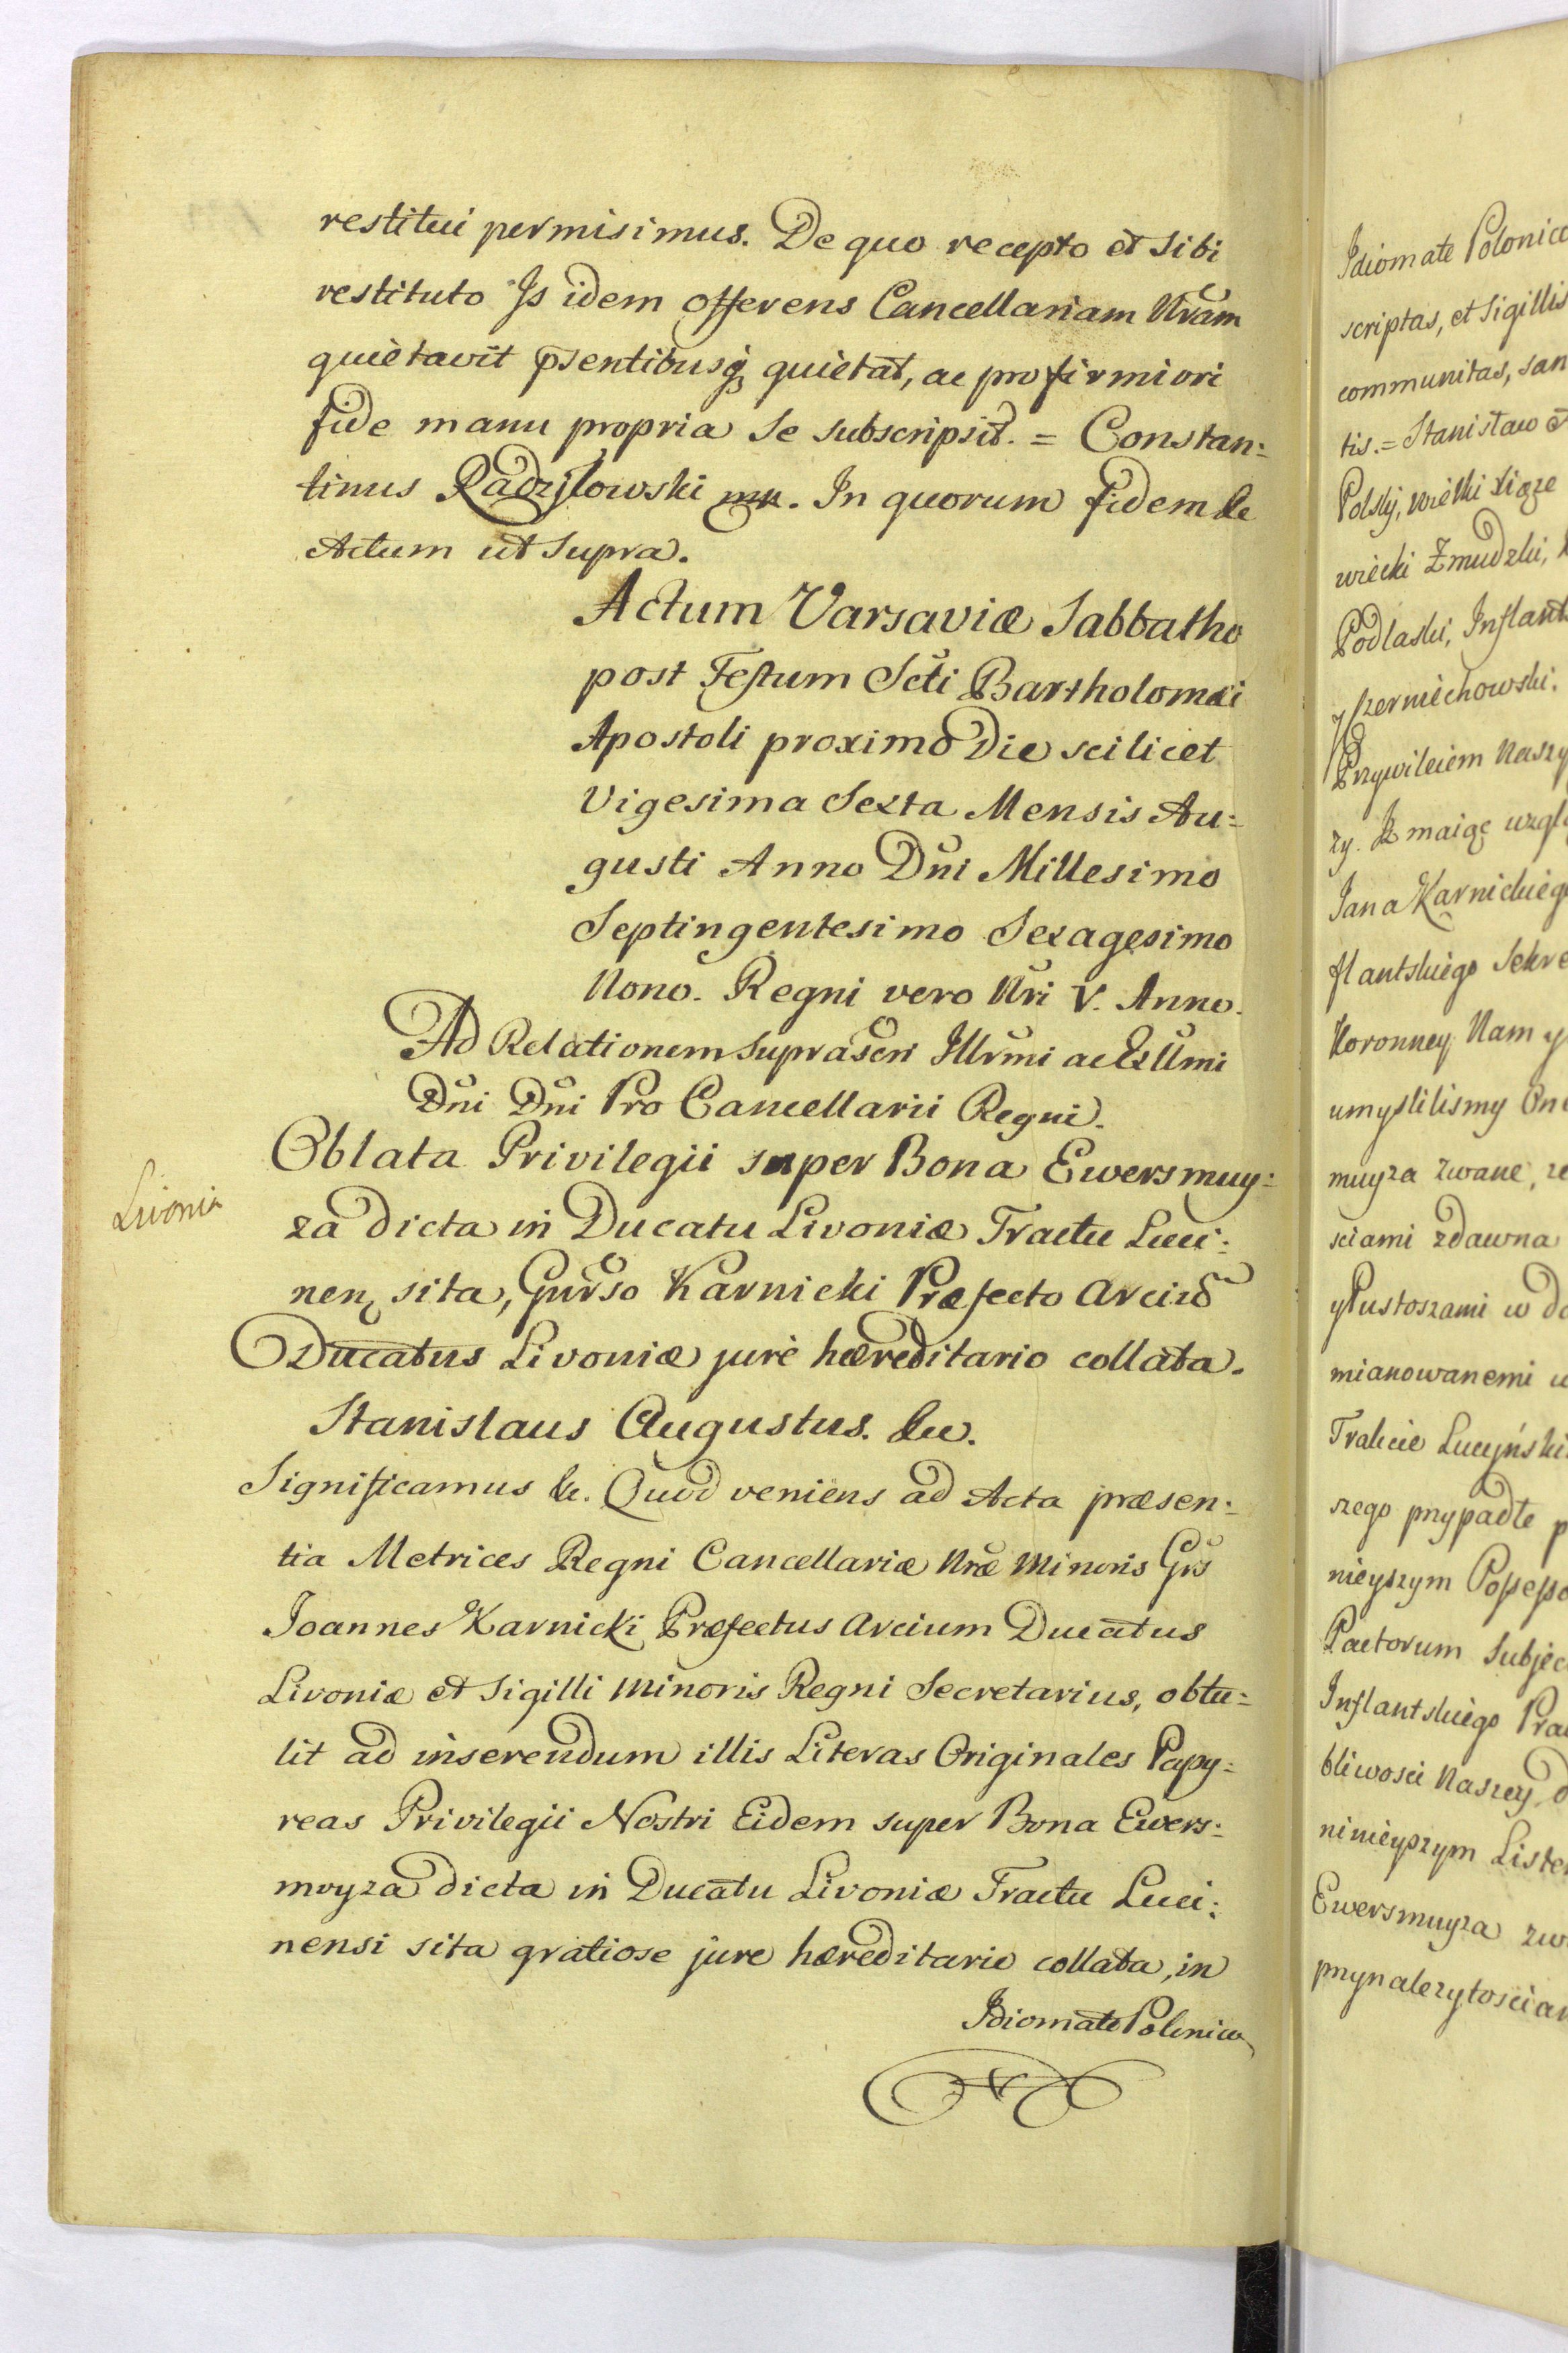 restitui permisimus. De quo recepto et sibi
restituto Is idem offerens Cancellariam Nram
quietavit psentibusq quietat, ac pro firmiori
fide manu propria se subscripsit. = Constan:
tinus Radzyłowski mp. In quorum fidem &c
Actum ut supra.
Actum Varsaviæ Sabbatho
post Festum Scti Bartholomæi
Apostoli proximo Die scilicet
Vigesima Sexta Mensis Au:
gusti Anno Dni Millesimo
Septingentesimo Sexagesimo
Nono. Regni vero Nri V. Anno.
Ad Relationem suprascri Illrmi ac Exllmi
Dni Dni Pro Cancellarii Regni.
Oblata Privilegii super Bona Ewersmuy:
Livonia
za dicta in Ducatu Livoniæ Tractu Luci:
nen sita, Gnrso Karnicki Præfecto Arciu
Ducatus Livoniæ jure hæreditario collata.
Stanislaus Augustus. &c.
Significamus &c. Quod veniens ad Acta præsen:
tia Metrices Regni Cancellariæ Nræ Minoris Gnrs
Joannes Karnicki Præfectus Arcium Ducatus
Livoniæ et Sigilli Minoris Regni Secretarius, obtu:
lit ad inserendum illis Literas Originales Papy:
reas Privilegii Nostri Eidem super Bona Ewers:
moyza dicta in Ducatu Livoniæ Tractu Luci:
nensi sita gratiose jure hæreditario collata, in
Idiomate Polonico
Idiomate Polonico
scriptas, et Sigillis
communitas, san
tis. = Stanisław
Polski, wielki Xiąze
wiecki Zmudzki,
Podlaski, Inflants
y Czerniechowski.
Przywileiem Naszy
zy. Iz maiąc wzglę
Jana Karnickiego
flantskiego Sekre
Koronney Nam y
umyslilismy One
muyza zwane, ze
sciami zdawna
y Pustoszami w do
mianowanemi w
Trakcie Lucyński
szego przypadłe p
nieyszym Possesso
Pactorum Subjec
Inflantskiego Pra
bliwosci Naszey d
ninieyszym Liste
Ewersmuyza zw
przynalezytoscia